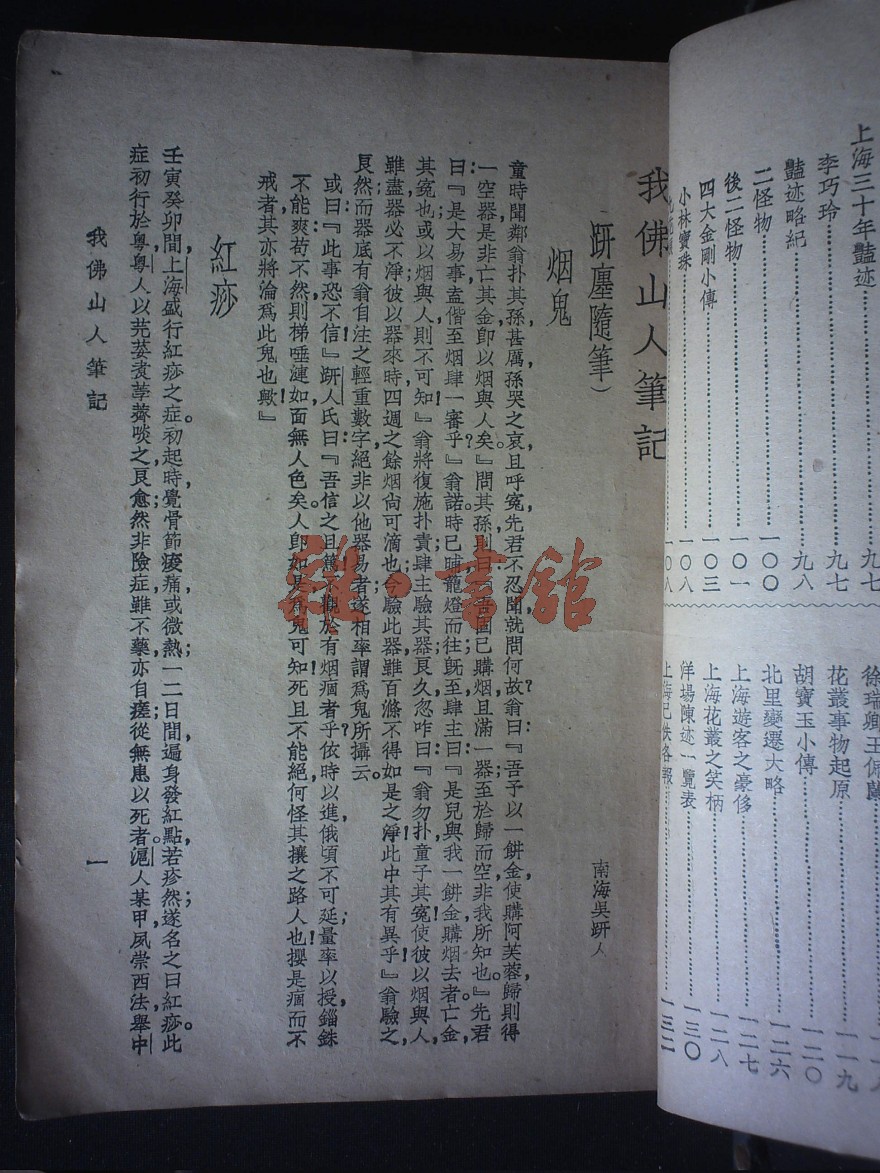 上海三十年豔迹……九七
李巧玲……九七
豔迹略紀……九八
二怪物……一〇〇
後二怪物……一〇一
四大金剛小傳……一〇三
小林寶珠……一〇八
花叢事物起原……一一九
胡寶玉小傳……一二〇
北里變遷大略……一二六
上海遊客之豪侈……一二七
上海花叢之笑柄……一二八
洋場陳迹一覽表……一三〇
上海已佚各報……一三二
我佛山人筆記
南海吳趼人
(趼廛隨筆)
烟鬼
童時聞鄰翁扑其孫甚厲，孫哭之哀，且呼冤，先君不忍聞，就問何故？翁曰：『吾予以一餅金，使購阿芙蓉，歸則得
一空器，是非亡其金，即以烟與人矣。』問其孫，則曰：『吾固已購烟，且滿一器，至於歸而空，非我所知也。』先君
曰：『是大易事，盍偕至烟肆一審乎？』翁諾。時已晡，籠燈而往，旣至，肆主曰：『是兒與我一餅金，購烟去者，亡金，
其冤也，或以烟與人，則不可知。』翁將復施扑責，肆主驗其器，良久，忽咋曰：『翁勿扑，童子其冤！使彼以烟與人，
雖盡器必不淨，彼以器來時，四週之餘烟尚可滴也；今驗此器，雖百滌不得如是之淨，此中其有異乎！』翁驗之，
良然；而器底有翁自注之輕重數字，絕非以他器易者，遂相率謂爲鬼所攝云。
或曰：『此事恐不信！』趼人氏曰：『吾信之且篤！不觀於有烟癎者乎？依時以進，俄頃不可延；量率以授，錙銖
不能爽；苟不然，則梯唾漣如，面無人色矣。人卽如是，爲鬼可知，死且不能絕，何怪其攘之路人也！攖是癎而不
戒者，其亦將淪爲此鬼也歟！』
紅痧
壬寅癸卯間，上海盛行紅痧之症。初起時，覺骨節痠痛，或微熱，一二日間，遍身發紅點，若疹然，遂名之曰紅痧。此
症初行於粵，粵人以芫荽煑荸薺啖之，良愈；然非險症，雖不藥，亦自瘥；從無患以死者。滬人某甲，夙崇西法，舉中
我佛山人筆記
一